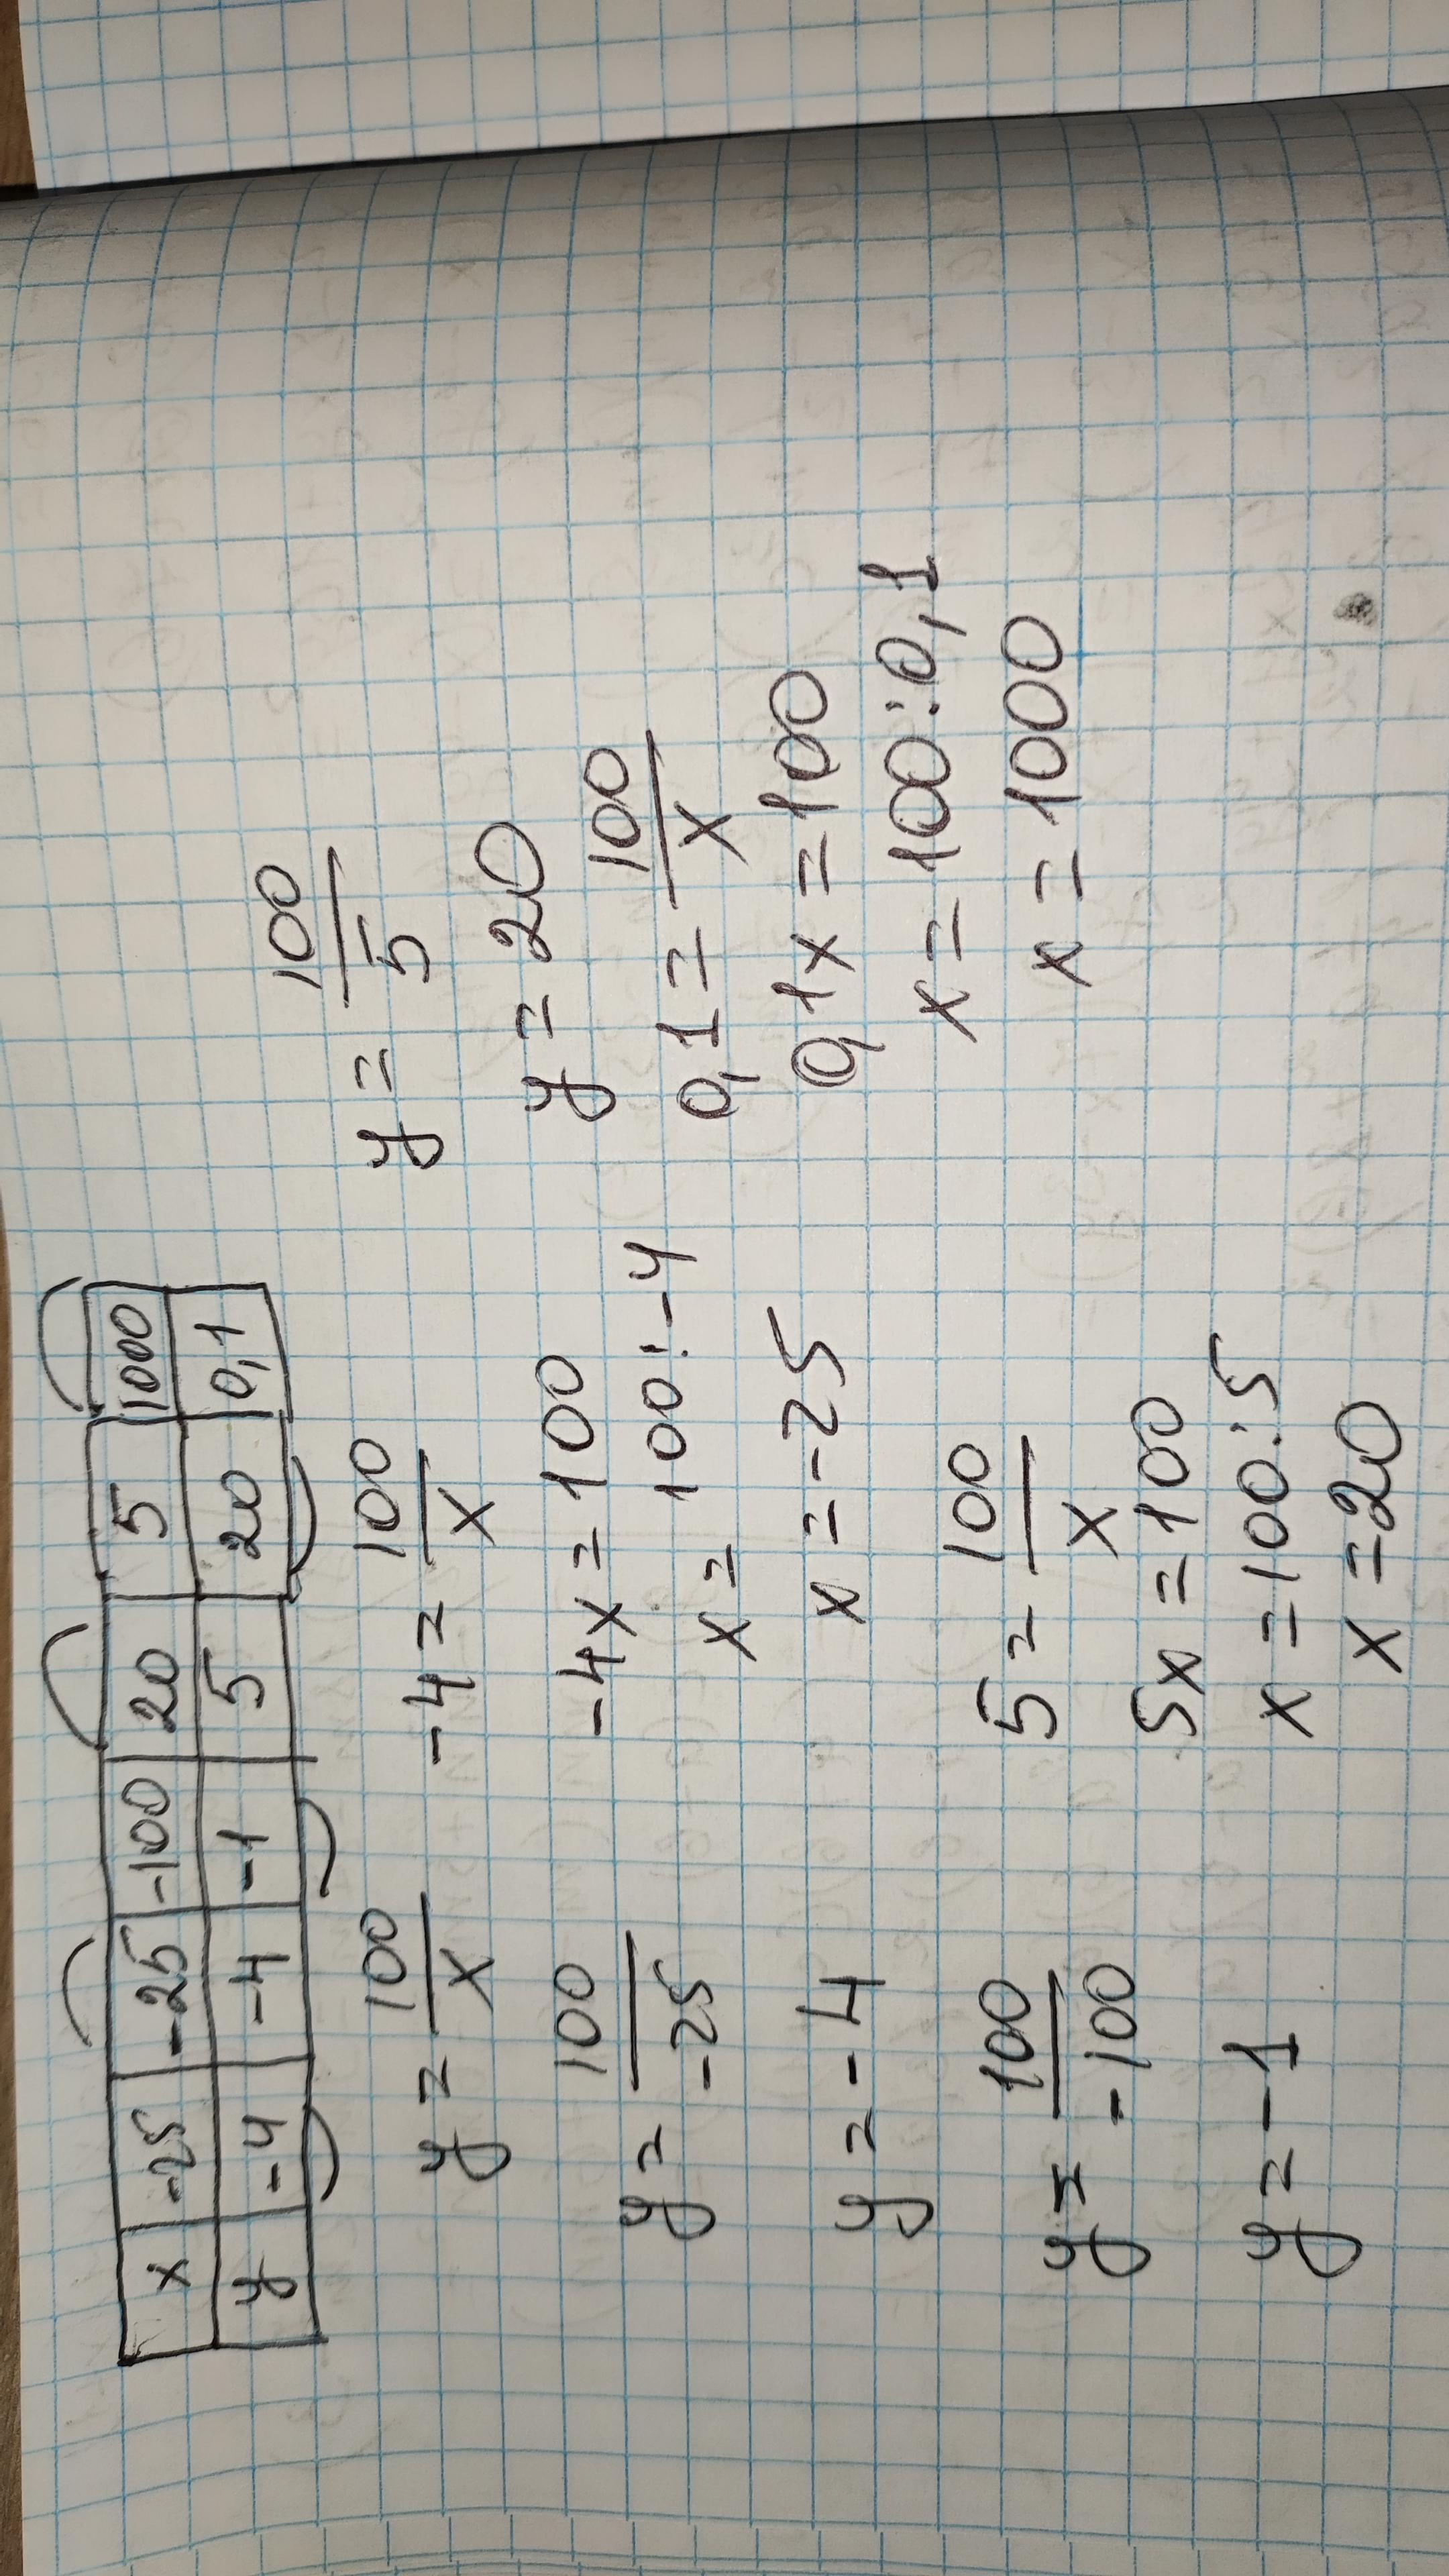 x -25 -25 -100 20 5 1000
y -4 -4 -1 5 20 0,1
y = 100/x
y = 100/-25
y = -4
y = 100/-100
y = -1
-4 = 100/x
-4x = 100
x = 100 : -4
x = -25
5 = 100/x
5x = 100
x = 100 : 5
x = 20
y = 100/5
y = 20
0,1 = 100/x
0,1x = 100
x = 100 : 0,1
x = 1000